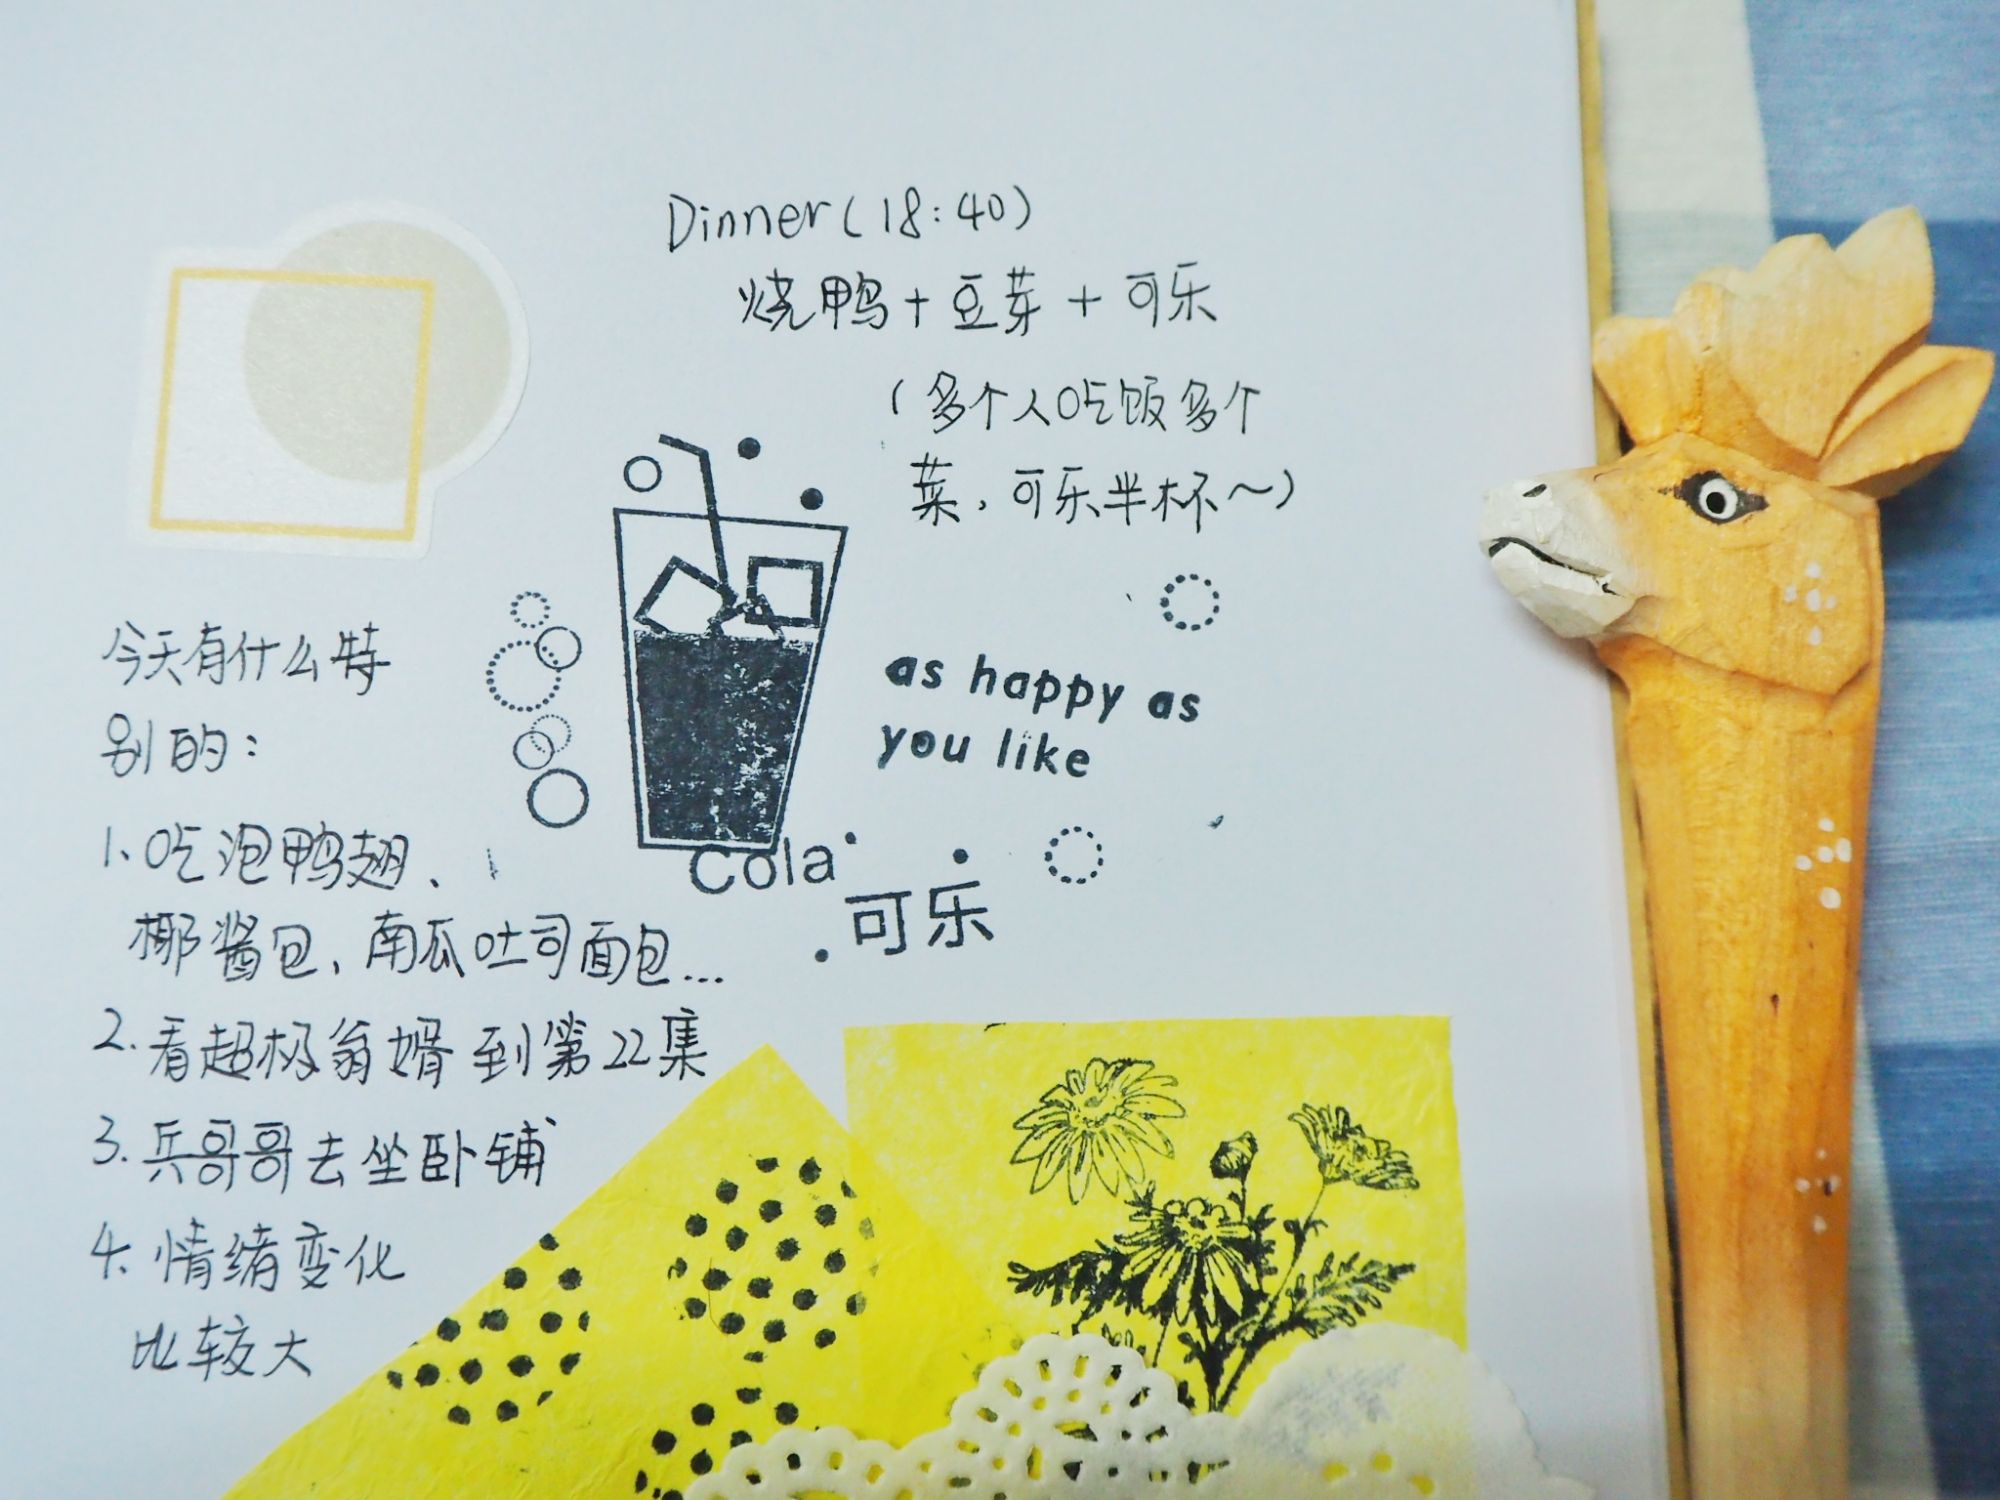 Dinner(18:40)
烧鸭+豆芽+可乐
(多个人吃饭多个
菜，可乐半杯～)
as happy as
you like
Cola
可乐
今天有什么特
别的：
1、吃泡鸭翅、
椰酱包、南瓜吐司面包...
2.看超极翁婿到第22集
3.兵哥哥去坐卧铺
4.情绪变化
比较大